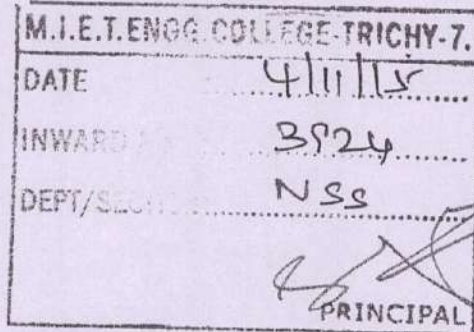 M.I.E.T.ENGG.COLLEGE-TRICHY-7.
DATE 4/11/15
INWARD
DEPT/SEC NSS
PRINCIPAL